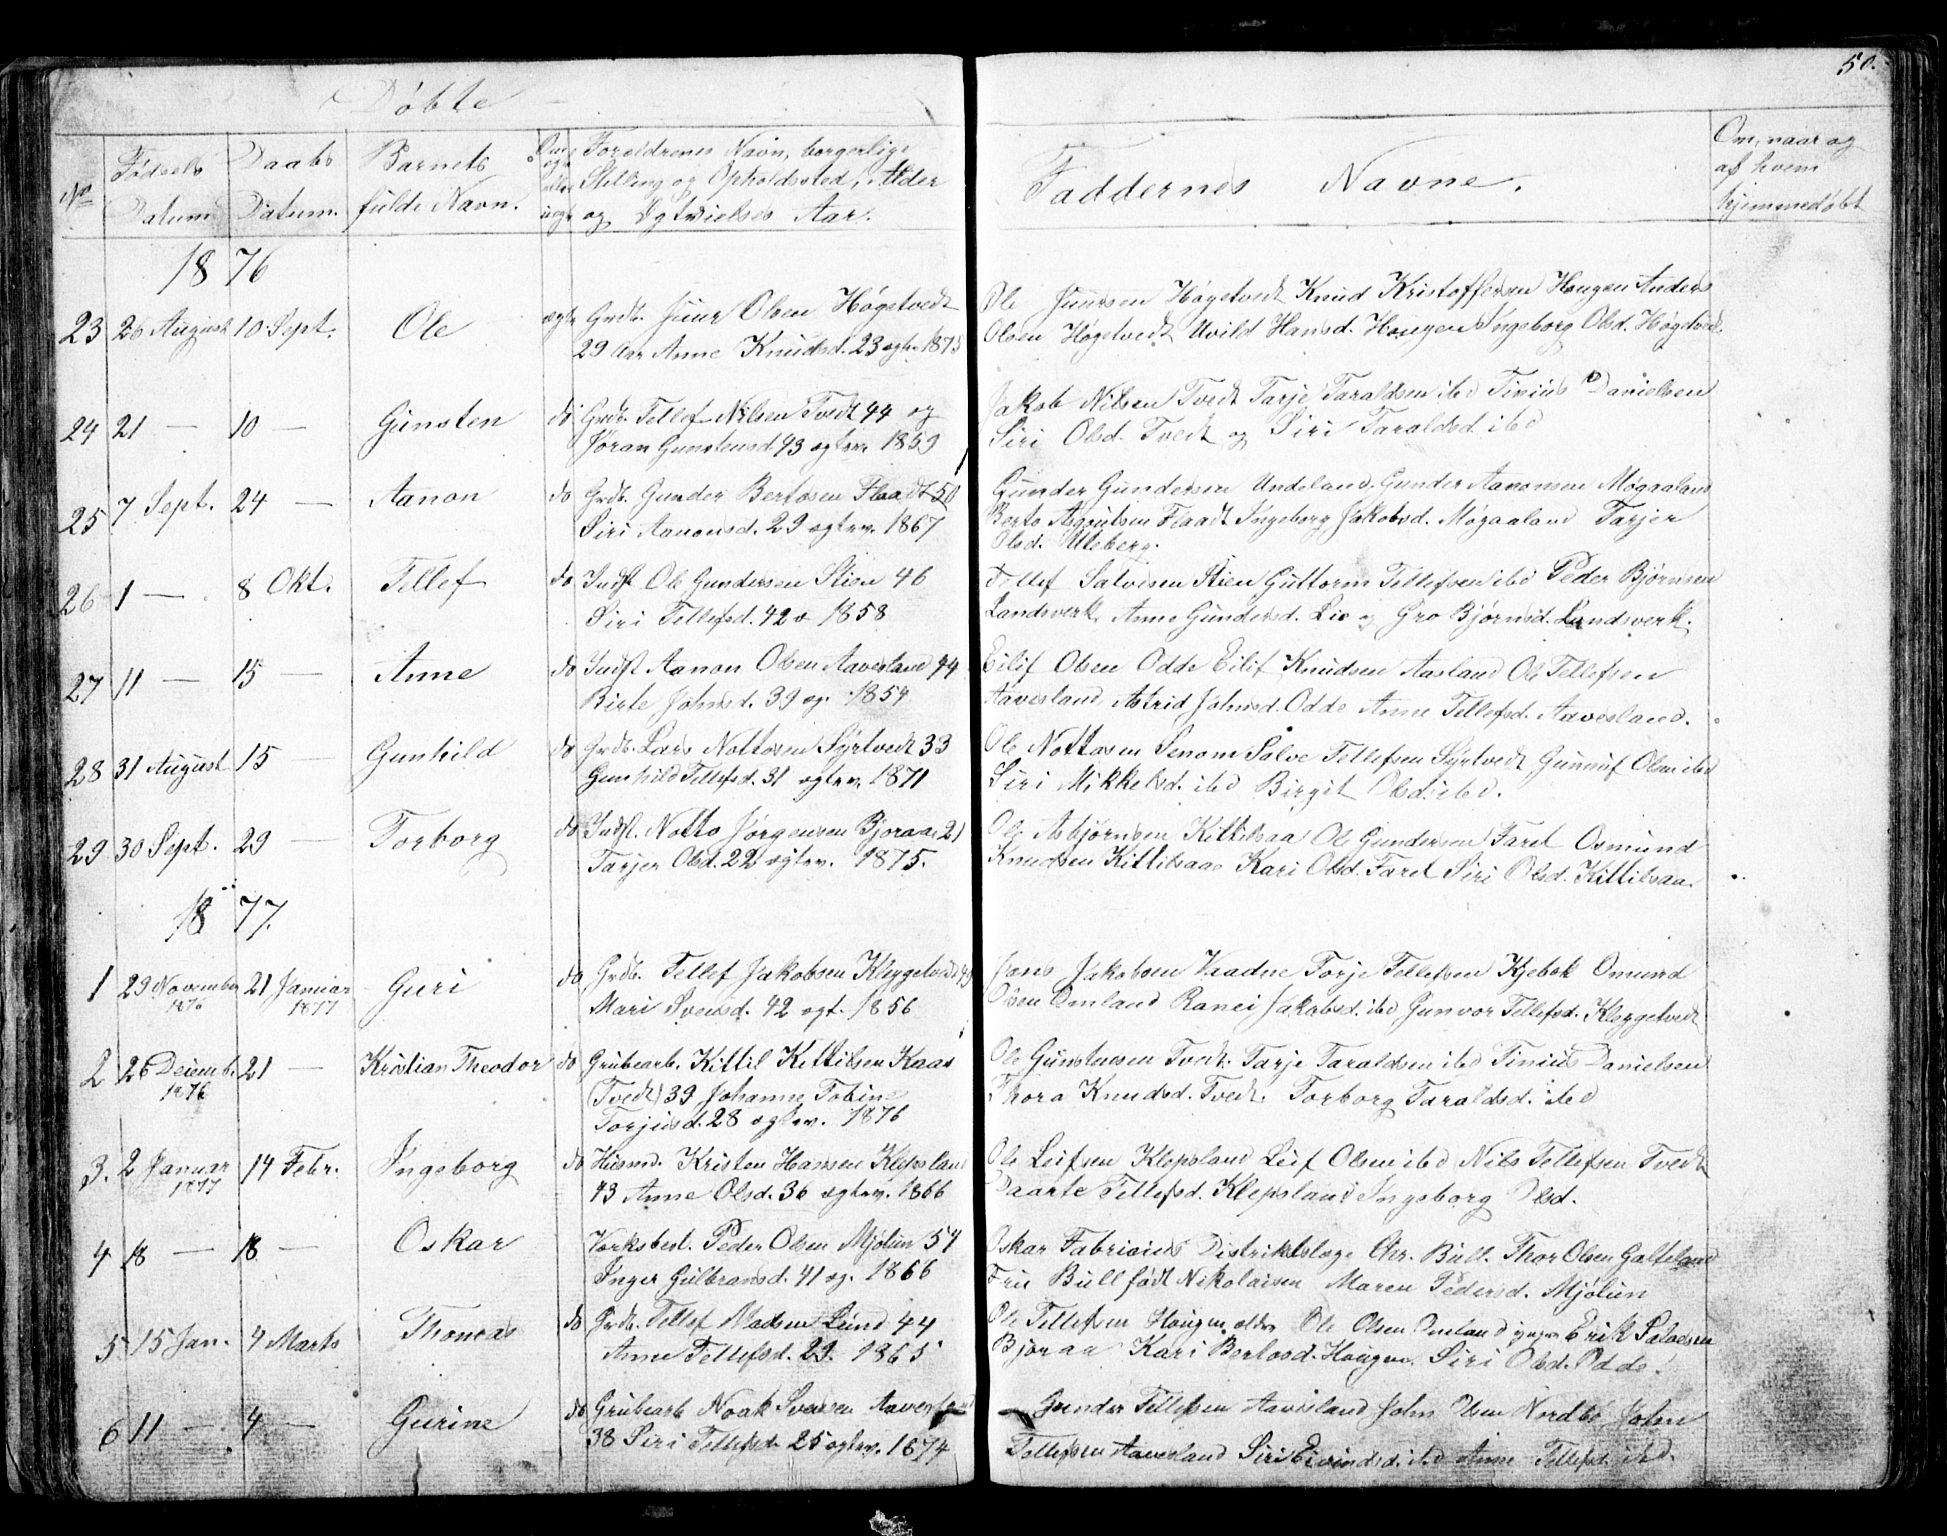 50.
Døbte
No
Fødsels Datum
Daabs Datum.
Barnets fulde Navn.
Forældrenes Navn, borgerlige
Stilling og Opholdssted, Alder
og Ægtvielses Aar.
Faddernes Navne.
Om, naar og
af hvem
hjemmedøbt
1876
23 26 August 10 Sept. Ole ægte Grdb. Juur Olsen Høgetvedt
29 Aar Anne Knudsd. 23 ægtv. 1875
Ole Juursen Høgetvedt Knud Kristoffersen Hougen Anders
Olsen Høgetvedt Uvild Hansd. Hougen Ingeborg Olsd. Høgetvedt
24 21 — 10 — Gunsten do Grdb. Tellef Nilsen Tvedt 44 og
Jøran Gunstensd 43 ægtev. 1859
Jakob Nilsen Tvedt Tarje Taraldsen ibd Tinius Danielsen
Siri Olsd. Tvedt og Siri Taraldsd. ibd
25 7 Sept. 24 — Aanon do Grdb. Gunder Bertosen Flaadt 50
Siri Aanonsd. 29 ægtev. 1867
Gunder Gundersen Undeland, Gunder Aanonsen Møgaaland
Berto Asgoutsen Flaadt Ingeborg Jakobsd. Møgaaland Tarjer
Olsd. Uleberg.
26 1 — 8 Okt. Tellef do Indst Ole Gundersen Stien 46
Siri Tellefsd. 42 æ 1858
Tellef Salvesen Stien Guttorm Tellefsen ibd Peder Bjørnsen
Landsverk, Anne Gundersd. Lie og Gro Bjørnsd. Landsverk.
27 11 — 15 — Anne do Indst Aanon Olsen Aavesland 44
Birte Johnsd. 39 æg. 1854
Eilif Olsen Odde Eilif Knudsen Aasland Ole Tellefsen
Aavesland, Astrid Johnsd. Odde Anne Tellefsd. Aavesland.
28 31 August 15 — Gunhild do Grdb. Lars Nottosen Syrtvedt 33
Gunhild Tellefsd. 31 ægtev. 1871
Ole Nottosen Senom Salve Tellefsen Syrtvedt Gunnuf Olsen ibd
Siri Mikkelsd. ibd Birgit Olsd. ibd.
29 30 Sept. 29 — Torborg do Indst. Notto Jørgensen Bjoraa 21
Tarjer Olsd. 22 ægtev. 1875.
Ole Asbjørnsen Kittilsaa Ole Gundersen Faret Osmund
Knudsen Kittilsaa Kari Olsd. Faret Siri Olsd. Kittilsaa.
1877.
1 29 November 1876 21 Januar 1877 Guri do Grdb. Tellef Jakobsen Kleggetvedt 49
Mari Svensd. 42 ægt. 1856
Jens Jakobsen Vaadne Torje Tellefsen Kjebek Omund
Olsen Omland Ranei Jakobsd. ibd Gunvor Tellefsd. Kleggetvedt
2 26 Decemb. 1876 21 — Kristian Theodor do Grubearb. Kittil Kittilsen Kaas
(Tvedt) 39 Johanne Tobine
Torjusd. 28 ægtev. 1876
Ole Gunstensen Tvedt. Tarje Taraldsen ibd Tinius Danielsen
Thora Knudsd. Tvedt. Torborg Taraldsd. ibd
3. 2 Januar 1877 14 Febr. Ingeborg do Husmd. Kristen Hansen Klepsland
43 Anne Olsd. 36 ægtev. 1866
Ole Leifsen Klepsland Leif Olsen ibd Nils Tellefsen Tvedt
Daarte Tellefsd. Klepsland Ingeborg Olsd.
4 18 — 18 — Oskar Værksbest. Peder Olsen Mjølun 54
Inger Gulbransd. 41 æg. 1866
Oskar Fabricius Distriktslæge Chr. Bull. Thor Olsen Galteland
Fru Bull født Nikolaisen Maren Pedersd. Mjølun
5 15 Jan. 4 Marts Thomas do Grdb. Tellef Madsen Lund 44
Anne Tellefsd. 29. 1865
Ole Tellefsen Hougen ældr Ole Olsen Omland yngr Erik Salvesen
Bjoraa Kari Bertosd. Hougen. Siri Olsd. Odde.
6 11 — 4 — Gurine do Grubearb Noak Svensen Aavesland
38 Siri Tellefsd. 25 ægtev. 1874
Gunder Tellefsen Aavesland John Olsen Nordbø John
Tellefsen Aavesland Siri Eivindsd. ibd Anne Tellefsd. ibd.